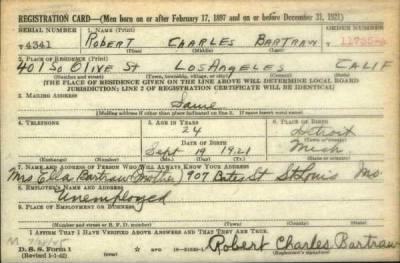 REGISTRATION CARD—(Men born on or after February 17, 1897 and on or before December 31, 1921)
SERIAL NUMBER 1. NAME (Print) ORDER NUMBER
4341 ROBERT CHARLES BARTRAW
(First) (Middle) (Last)
2. PLACE OF RESIDENCE (Print)
401 So OLIVE St LOS ANGELES CALIF
(Number and street) (Town, township, village, or city) (County) (State)
[THE PLACE OF RESIDENCE GIVEN ON THE LINE ABOVE WILL DETERMINE LOCAL BOARD
JURISDICTION; LINE 2 OF REGISTRATION CERTIFICATE WILL BE IDENTICAL]
3. MAILING ADDRESS
Same
[Mailing address if other than place indicated on line 2. If same insert word same]
4. TELEPHONE 5. AGE IN YEARS 6. PLACE OF BIRTH
24 Detroit
DATE OF BIRTH (Town or county)
Sept 19 1921 Mich.
(Exchange) (Number) (Mo.) (Day) (Yr.) (State or country)
7. NAME AND ADDRESS OF PERSON WHO WILL ALWAYS KNOW YOUR ADDRESS
Mrs Ella Bartraw (Mother) 907 St St Louis Mo
8. EMPLOYER'S NAME AND ADDRESS
Unemployed
9. PLACE OF EMPLOYMENT OR BUSINESS
(Number and street or R. F. D. number) (Town) (County) (State)
I AFFIRM THAT I HAVE VERIFIED ABOVE ANSWERS AND THAT THEY ARE TRUE.
D. S. S. Form 1
(Revised 1-1-42) Robert Charles Bartraw
(Registrant's signature)